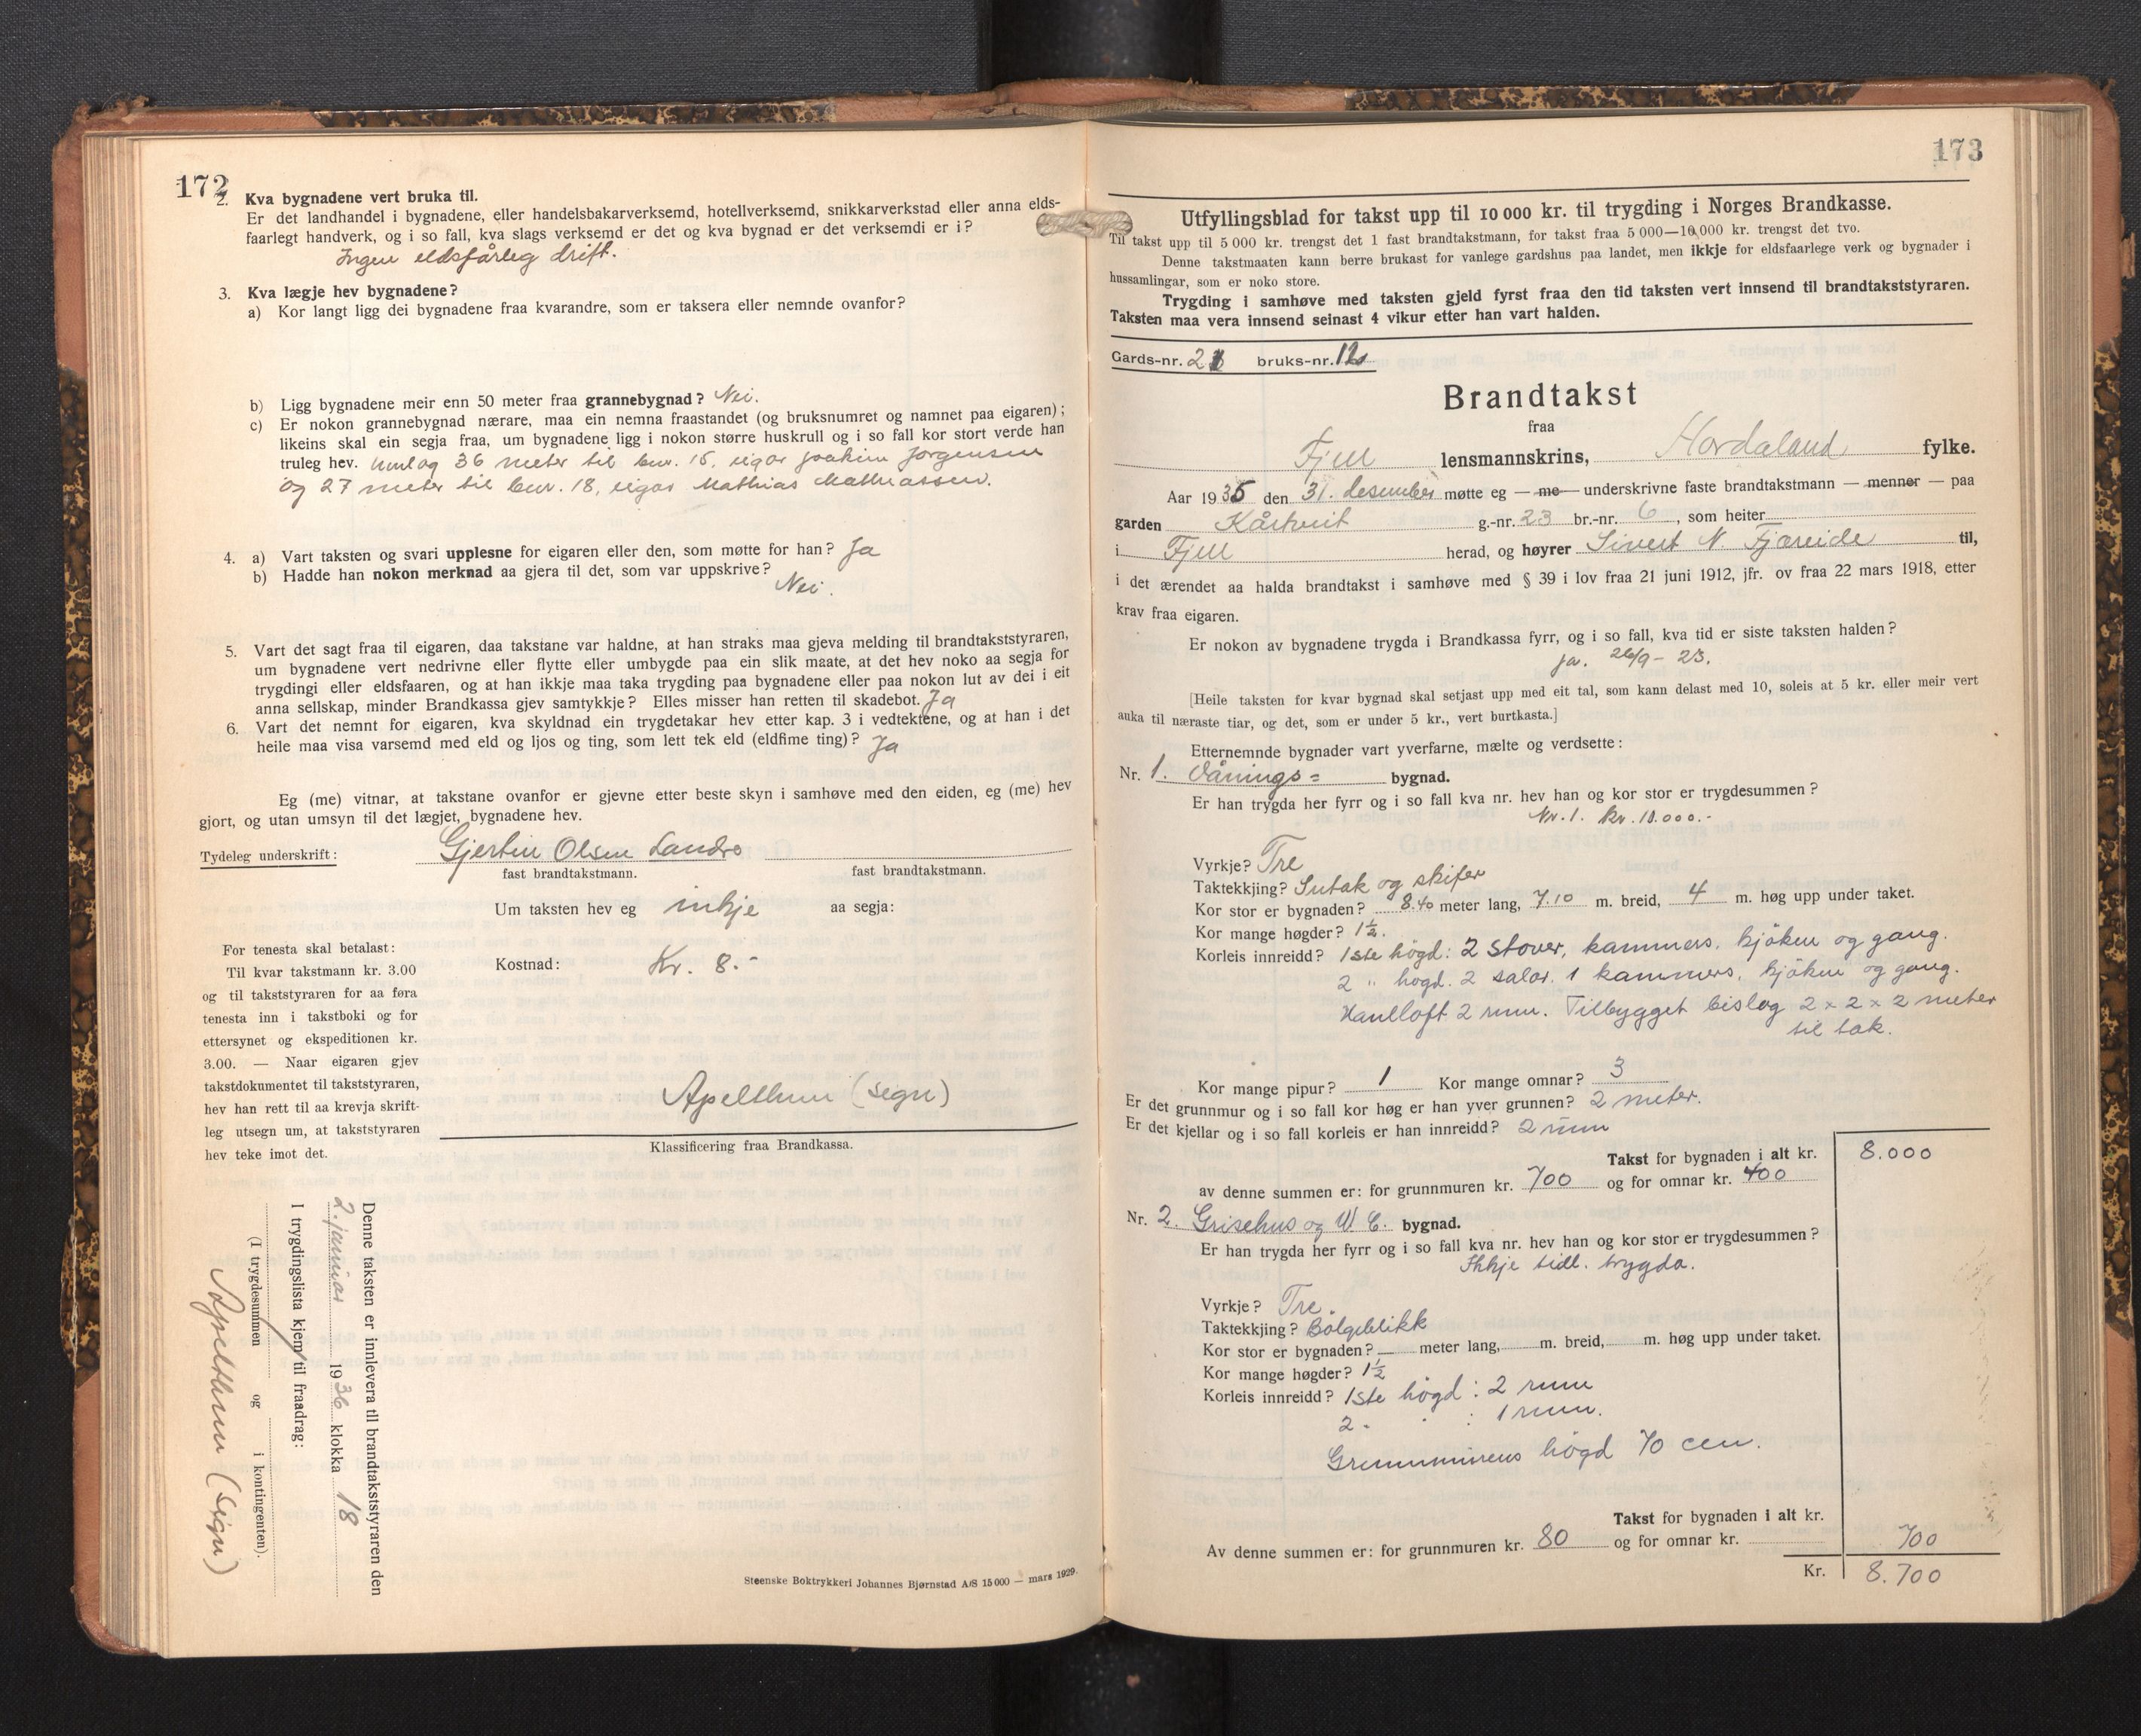 172
2. Kva bygnadene vert bruka til.
Er det landhandel i bygnadene, eller handelsbakarverksemd, hotellverksemd, snikkarverkstad eller anna elds-
faarlegt handverk, og i so fall, kva slags verksemd er det og kva bygnad er det verksemdi er i?
Ingen eldsfårleg drift.
3. Kva lægje hev bygnadene?
a) Kor langt ligg dei bygnadene fraa kvarandre, som er taksera eller nemnde ovanfor?
b) Ligg bygnadene meir enn 50 meter fraa grannebygnad? Nei.
c) Er nokon grannebygnad nærare, maa ein nemna fraastandet (og bruksnumret og namnet paa eigaren);
likeins skal ein segja fraa, um bygnadene ligg i nokon større huskrull og i so fall kor stort verde han
truleg hev. umlag 36 meter til bnr. 15, eigar Joakim Jørgensen
og 27 meter til bnr. 18, eigar Mathias Mathiassen.
4. a) Vart taksten og svari upplesne for eigaren eller den, som møtte for han? Ja
b) Hadde han nokon merknad aa gjera til det, som var uppskrive?
Nei.
5. Vart det sagt fraa til eigaren, daa takstane var haldne, at han straks maa gjeva melding til brandtakststyraren,
um bygnadene vert nedrivne eller flytte eller umbygde paa ein slik maate, at det hev noko aa segja for
trygdingi eller eldsfaaren, og at han ikkje maa taka trygding paa bygnadene eller paa nokon lut av dei i eit
anna sellskap, minder Brandkassa gjev samtykkje? Elles misser han retten til skadebot. Ja
6. Vart det nemnt for eigaren, kva skyldnad ein trygdetakar hev etter kap. 3 i vedtektene, og at han i det
heile maa visa varsemd med eld og ljos og ting, som lett tek eld (eldfime ting)? Ja
Eg (me) vitnar, at takstane ovanfor er gjevne etter beste skyn i samhøve med den eiden, eg (me) hev
gjort, og utan umsyn til det lægjet, bygnadene hev.
Tydeleg underskrift: Gjertin Olsen Landro
fast brandtakstmann. fast brandtakstmann.
Um taksten hev eg inkje aa segja:
Kostnad: Kr. 8.-
For tenesta skal betalast:
Til kvar takstmann kr. 3.00
og til takststyraren for aa føra
tenesta inn i takstboki og for
ettersynet og ekspeditionen kr.
3.00. — Naar eigaren gjev
takstdokumentet til takststyraren,
hev han rett til aa krevja skrift-
leg utsegn um, at takststyraren
hev teke imot det.
Apelthun (sign)
Klassificering fraa Brandkassa.
Denne taksten er innlevera til brandtakststyraren den
2. januar 1936 klokka 18
I trygdingslista kjem til fraadrag:
(I trygdesummen og i kontingenten).
Apelthun (sign)
Steenske Boktrykkeri Johannes Bjørnstad A/S 15000 — mars 1929.
173
Utfyllingsblad for takst upp til 10 000 kr. til trygding i Norges Brandkasse.
Til takst upp til 5 000 kr. trengst det 1 fast brandtakstmann, for takst fraa 5 000—10,000 kr. trengst det tvo.
Denne takstmaaten kann berre brukast for vanlege gardshus paa landet, men ikkje for eldsfaarlege verk og bygnader i
hussamlingar, som er noko store.
Trygding i samhøve med taksten gjeld fyrst fraa den tid taksten vert innsend til brandtakststyraren.
Taksten maa vera innsend seinast 4 vikur etter han vart halden.
Gards-nr. bruks-nr.
Brandtakst
fraa
Fjell lensmannskrins, Hordaland fylke.
Aar 1935 den 31. desember møtte eg — me — underskrivne faste brandtakstmann — menner — paa
garden Kårtveit g.-nr. 23 br.-nr. 6, som heiter
i Fjell herad, og høyrer Sivert N. Fjæreide til,
i det ærendet aa halda brandtakst i samhøve med § 39 i lov fraa 21 juni 1912, jfr. ov fraa 22 mars 1918, etter
krav fraa eigaren.
Er nokon av bygnadene trygda i Brandkassa fyrr, og i so fall, kva tid er siste taksten halden?
Ja. 26/9 - 23.
[Heile taksten for kvar bygnad skal setjast upp med eit tal, som kann delast med 10, soleis at 5 kr. eller meir vert
auka til næraste tiar, og det, som er under 5 kr., vert burtkasta.]
Etternemnde bygnader vart yverfarne, mælte og verdsette:
Nr. 1. Vånings= bygnad.
Er han trygda her fyrr og i so fall kva nr. hev han og kor stor er trygdesummen?
Nr. 1. kr. 10.000.-
Vyrkje? Tre
Taktekkjing? Sutak og skifer
Kor stor er bygnaden? 8.40 meter lang, 7.10 m. breid, 4 m. høg upp under taket.
Kor mange høgder? 1½.
Korleis innreidd? 1ste høgd: 2 stover, kammers, kjøken og gang.
2 " høgd. 2 salar. 1 kammers, kjøken og gang.
Hanelloft 2 rum. Tilbygget bislag 2 x 2 x 2 meter
til tak.
Kor mange pipur? 1 Kor mange omnar? 3
Er det grunnmur og i so fall kor høg er han yver grunnen? 2 meter.
Er det kjellar og i so fall korleis er han innreidd? 2 rum
Takst for bygnaden i alt kr. 8.000
av denne summen er: for grunnmuren kr. 700 og for omnar kr. 400
Nr. 2. Grisehus og W C. bygnad.
Er han trygda her fyrr og i so fall kva nr. hev han og kor stor er trygdesummen?
Ikkje tidl. trygda.
Vyrkje? Tre.
Taktekkjing? Bølgeblikk
Kor stor er bygnaden? meter lang, m. breid, m. høg upp under taket.
Kor mange høgder? 1½
Korleis innreidd? 1ste høgd: 2 rum
2. : 1 rum.
Grunnmurens høgd 70 cm.
Takst for bygnaden i alt kr.
Av denne summen er: for grunnmuren kr. 80 og for omnar kr. 700
Kr. 8.700